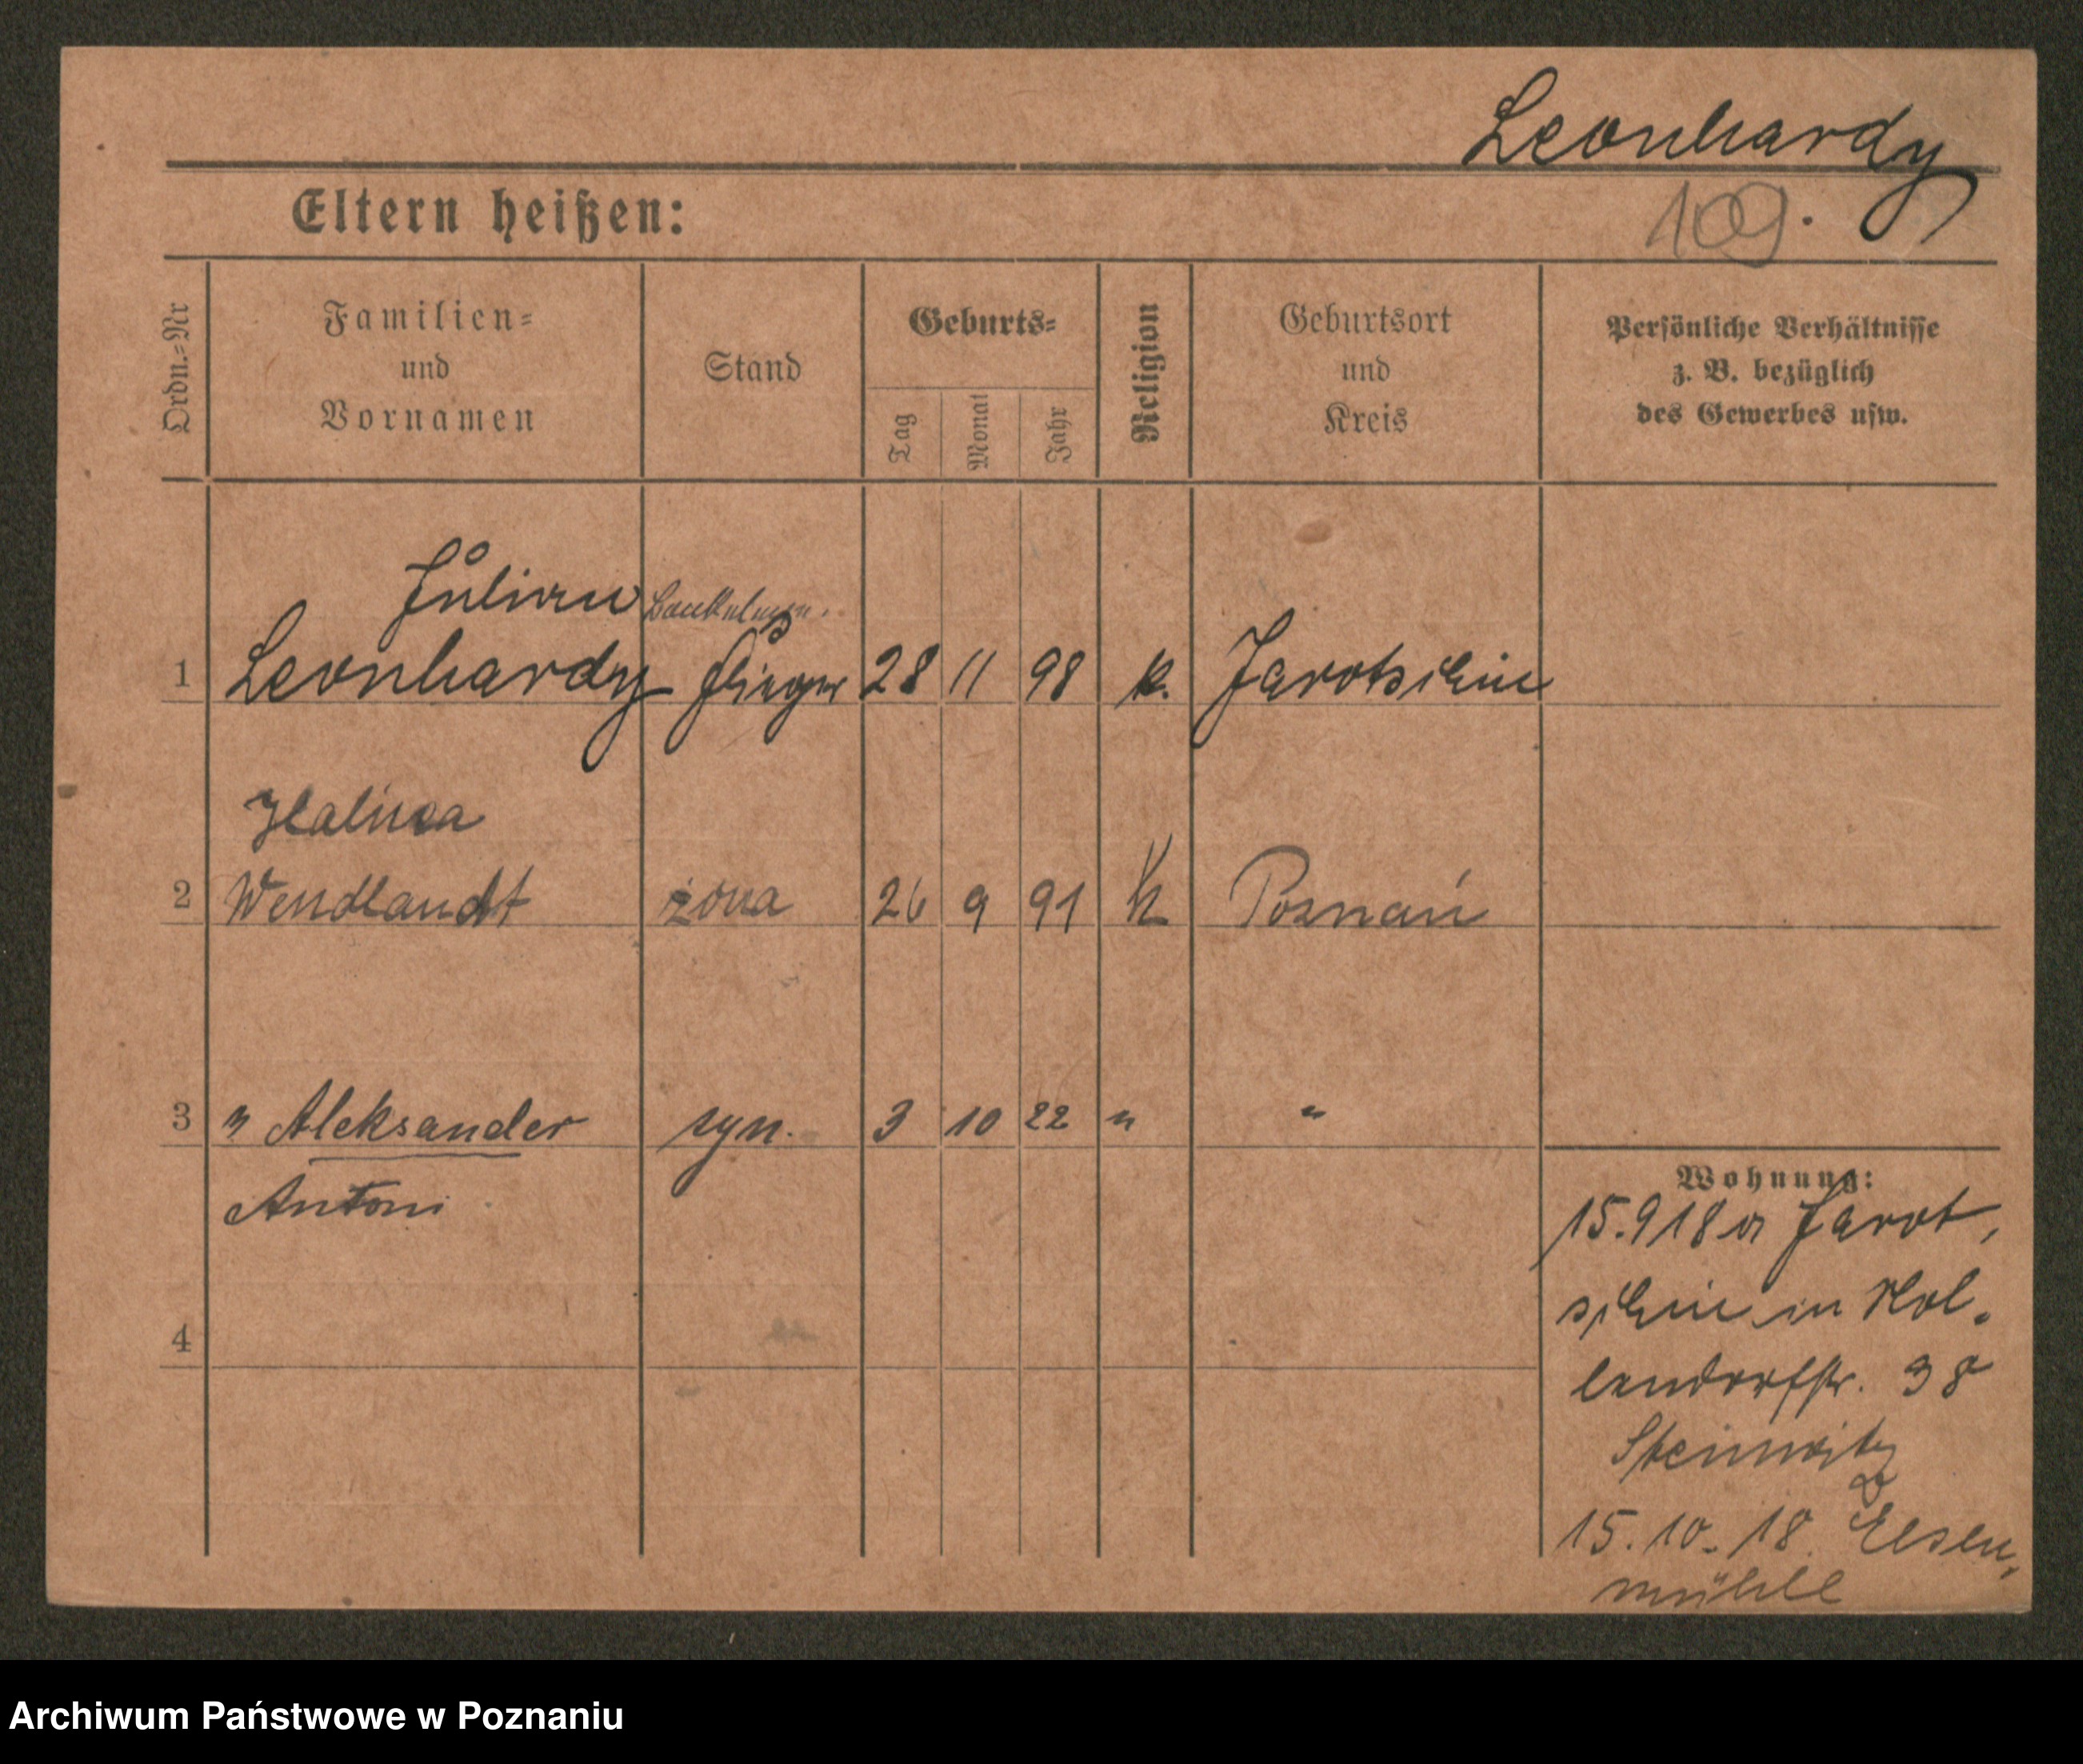 Leonhardy
109.
Eltern heißen:
Ordn.-Nr
Familien-
und
Vornamen
Stand
Geburts-
Tag
Monat
Jahr
Religion
Geburtsort
und
Kreis
Persönliche Verhältnisse
z. B. bezüglich
des Gewerbes usw.
Julian
1 Leonhardy Flieger 28 11 98 k. Jarotschin
Halina
2 Wendlandt żona 26 9 91 K Poznań
3 " Aleksander syn. 3 10 22 " "
Antoni
4
Wohnung:
15.9 18 a Jarot,
schin in Hol.
lendorfstr. 38
Steinnitz
15. 10. 18. Elsen,
mühle
Archiwum Państwowe w Poznaniu